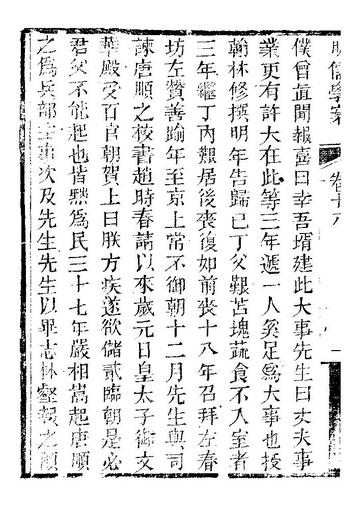 明儒學案 卷十八
僕曾直聞報喜曰幸吾壻建此大事先生曰丈夫事
業更有許大在此等三年遞一人奚足為大事也授
翰林修撰明年告歸已丁父艱苫塊蔬食不入室者
三年繼丁內艱居後喪復如前喪十八年召拜左春
坊左贊善踰年至京上常不御朝十二月先生與司
諫唐順之校書趙時春請以來歲元日皇太子御文
華殿受百官朝賀上曰朕方疾遂欲儲貳臨朝是必
君父不能起也皆黜為民三十七年嚴相嵩起唐順
之為兵部主事次及先生先生以畢志林壑報之順